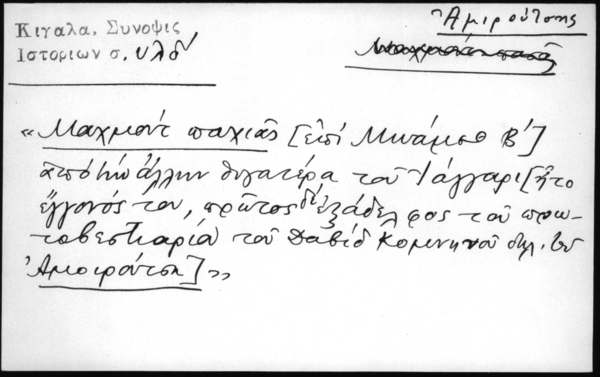 Κιγαλα, Συνοψις
Ιστοριων σ. υλδ'
Ἀμιρούτσης
«Μαχμοὺτ παχιᾶς [ἐπὶ Μωάμεθ Β']
ἀπὸ τὴν ἄλλην θυγατέρα τοῦ Ἰάγγαρι [ἦτο
ἔγγονός του, πρῶτος δὲ ἐξάδελφος τοῦ πρω-
τοβεστιαρία τοῦ Δαβίδ Κομνηνοῦ δηλ. τοῦ
Ἀμοιρούτση]»